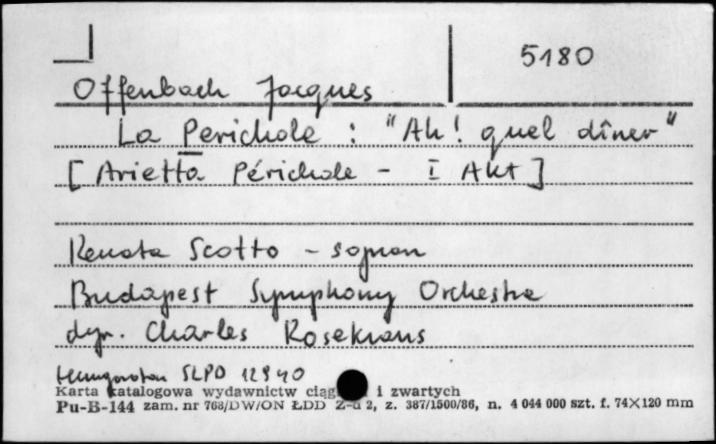 5180
Offenbach Jacques
La Perichole : "Ah! quel dîner"
[Arietta Périchole - I Akt]
Renata Scotto - sopran
Budapest Symphony Orchestra
dyr. Charles Rosekrans
Hungaroton SLPD 12940
Karta katalogowa wydawnictw i zwartych
Pu-B-144 zam. nr 768/DW/ON ŁDD 2, z. 387/1500/86, n. 4 044 000 szt. f. 74X120 mm